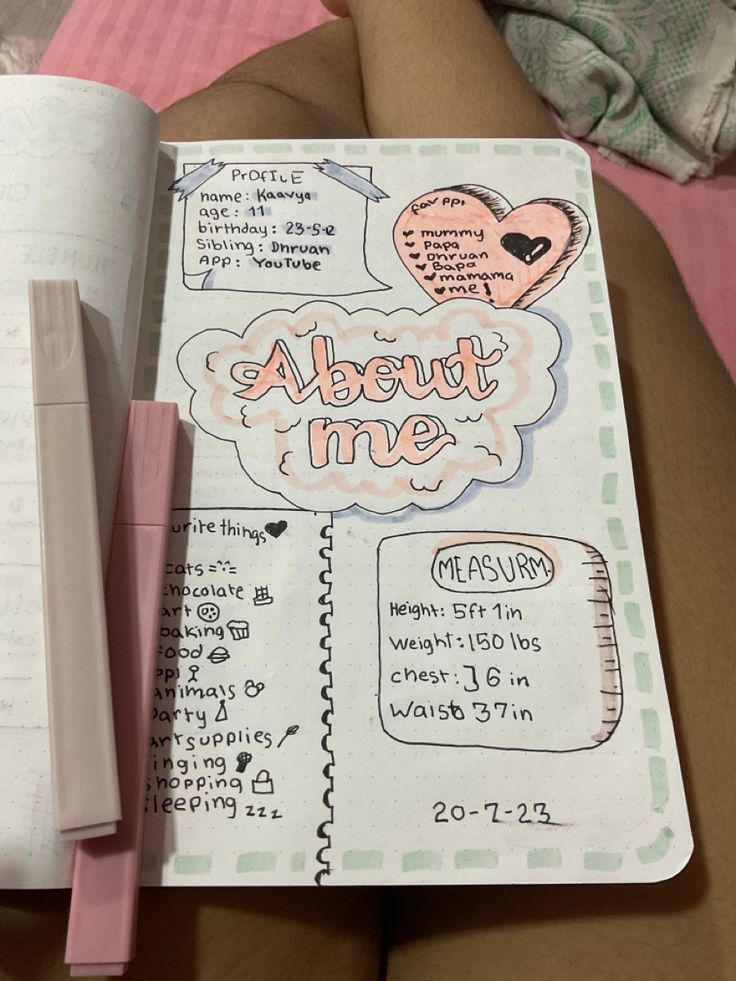 PrOfILE
name: Kaavya
age: 11
birthday: 23-5-12
Sibling: Dhruan
App: YouTube
fav ppl
mummy
Papa
Dhruan
Bapa
mamama
me!
About
me
urite things
cats
chocolate
art
baking
food
ppl
animals
Party
art supplies
inging
hopping
sleeping zzz
MEASURM.
Height: 5ft 1in
weight: 150 lbs
chest: 36 in
Waist 37in
20-7-23